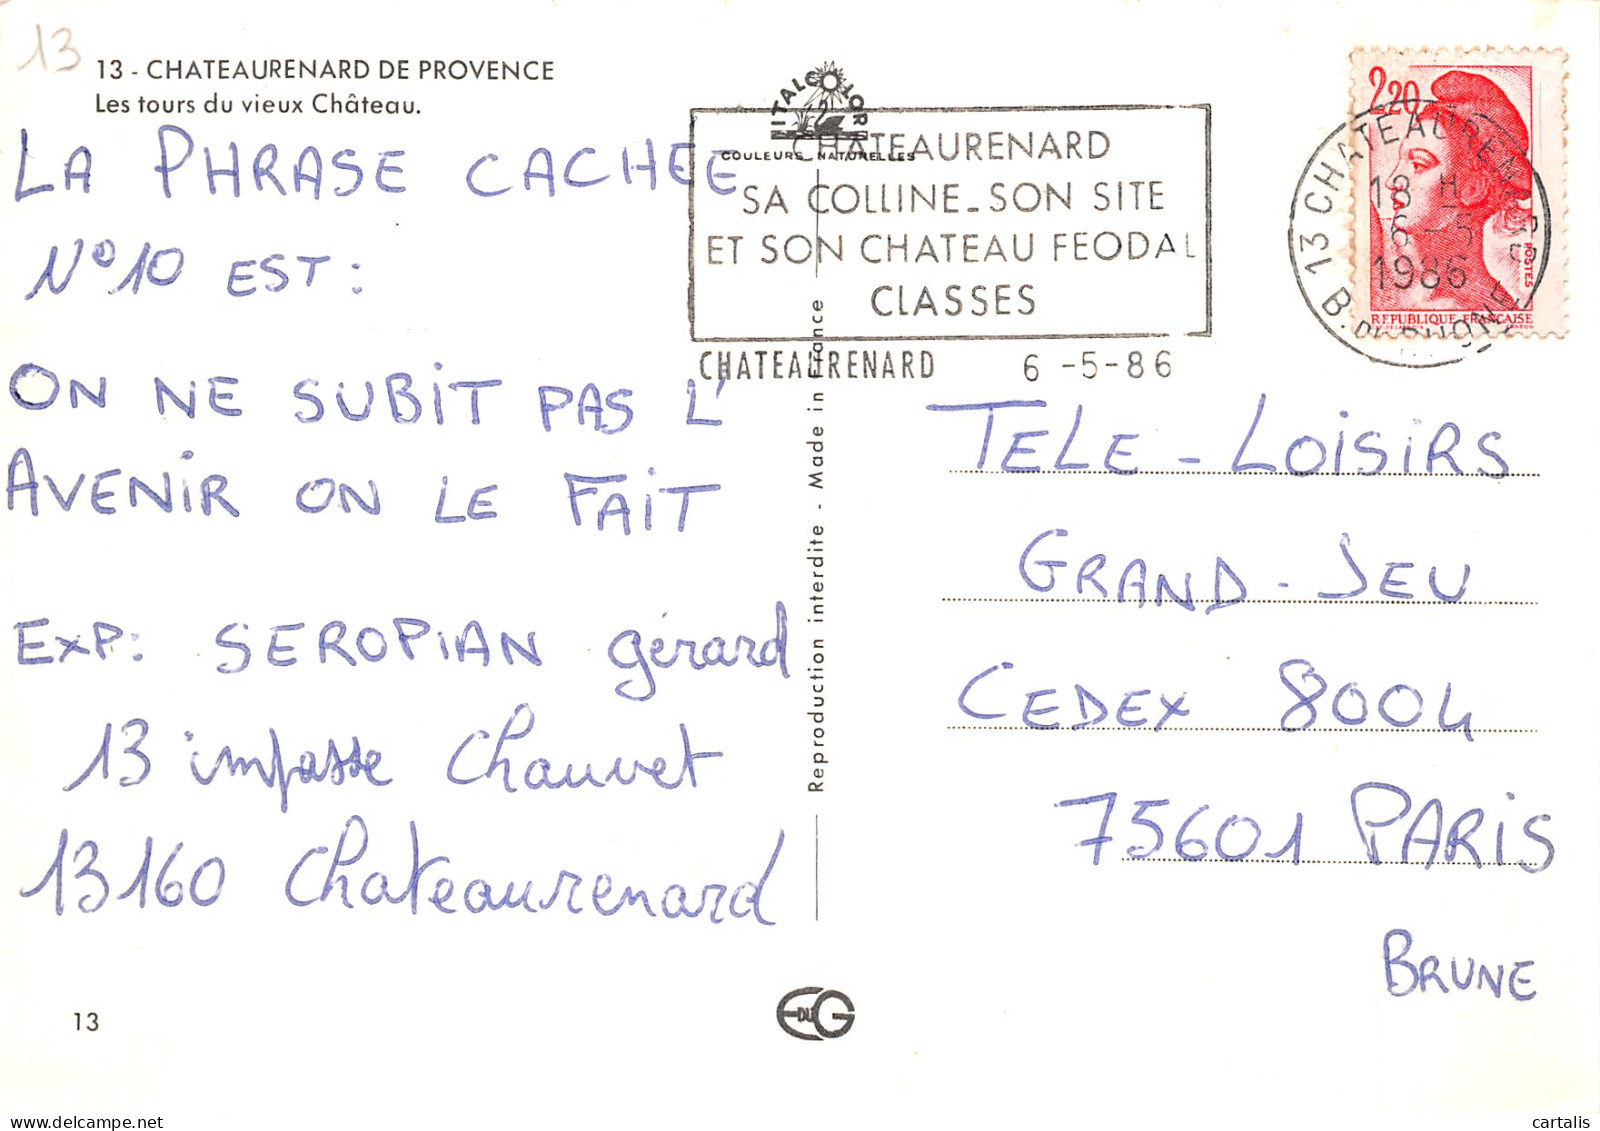 13
13 - CHATEAURENARD DE PROVENCE
Les tours du vieux Château.
LA PHRASE CACHEE
N° 10 EST :
ON NE SUBIT PAS L'
AVENIR ON LE FAIT
EXP: SEROPIAN gérard
13 impasse Chauvet
13160 Chateaurenard
13
ITALCOLOR
COULEURS NATURELLES
CHATEAURENARD
SA COLLINE_SON SITE
ET SON CHATEAU FEODAL
CLASSES
CHATEAURENARD 6 -5-86
Reproduction interdite - Made in France
EDUG
2,20
POSTES
REPUBLIQUE FRANCAISE
13 CHATEAURENARD
18 H
6 - 5
1986
B. DU RHONE
TELE - LOISIRS
GRAND - JEU
CEDEX 8004
75601 PARIS
BRUNE
cartalis